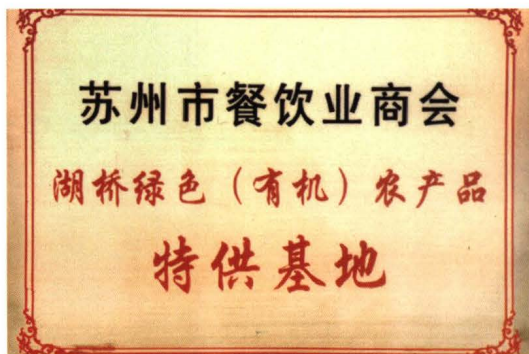 苏州市餐饮业商会
湖桥绿色（有机）农产品
特供基地